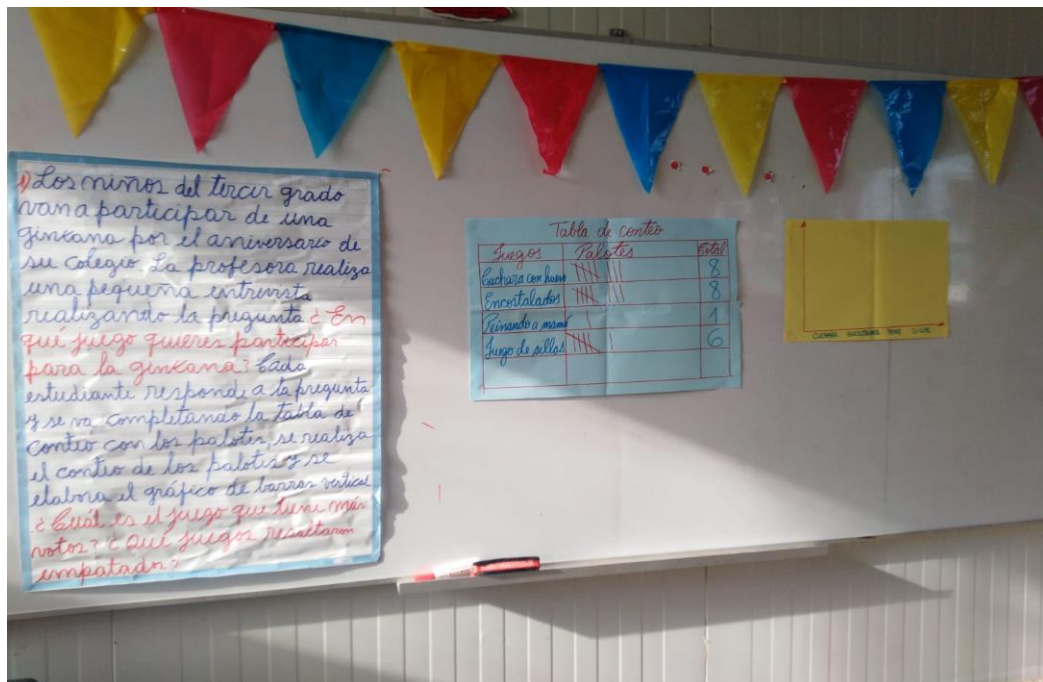 1) Los niños del tercer grado
van a participar de una
ginkana por el aniversario de
su colegio. La profesora realiza
una pequeña entrevista
realizando la pregunta ¿En
qué juego quieres participar
para la ginkana? Cada
estudiante responde a la pregunta
y se va completando la tabla de
conteo con los palotes, se realiza
el conteo de los palotes y se
elabora el gráfico de barras vertical
¿Cuál es el juego que tiene más
votos? ¿Qué juegos resultaron
empatados?
Tabla de conteo
Juegos Palotes Total
Cuchara con huevo 8
Encostalados 8
Peinando a mamá 1
Juego de sillas 6